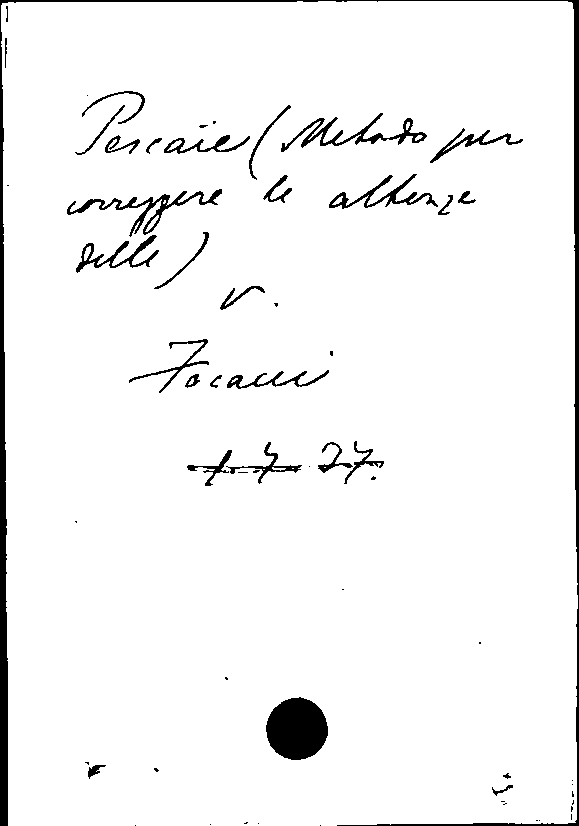 Pescaie (Metodo per
correggere le altezze
delle)
v.
Focacci
1. 7 27.